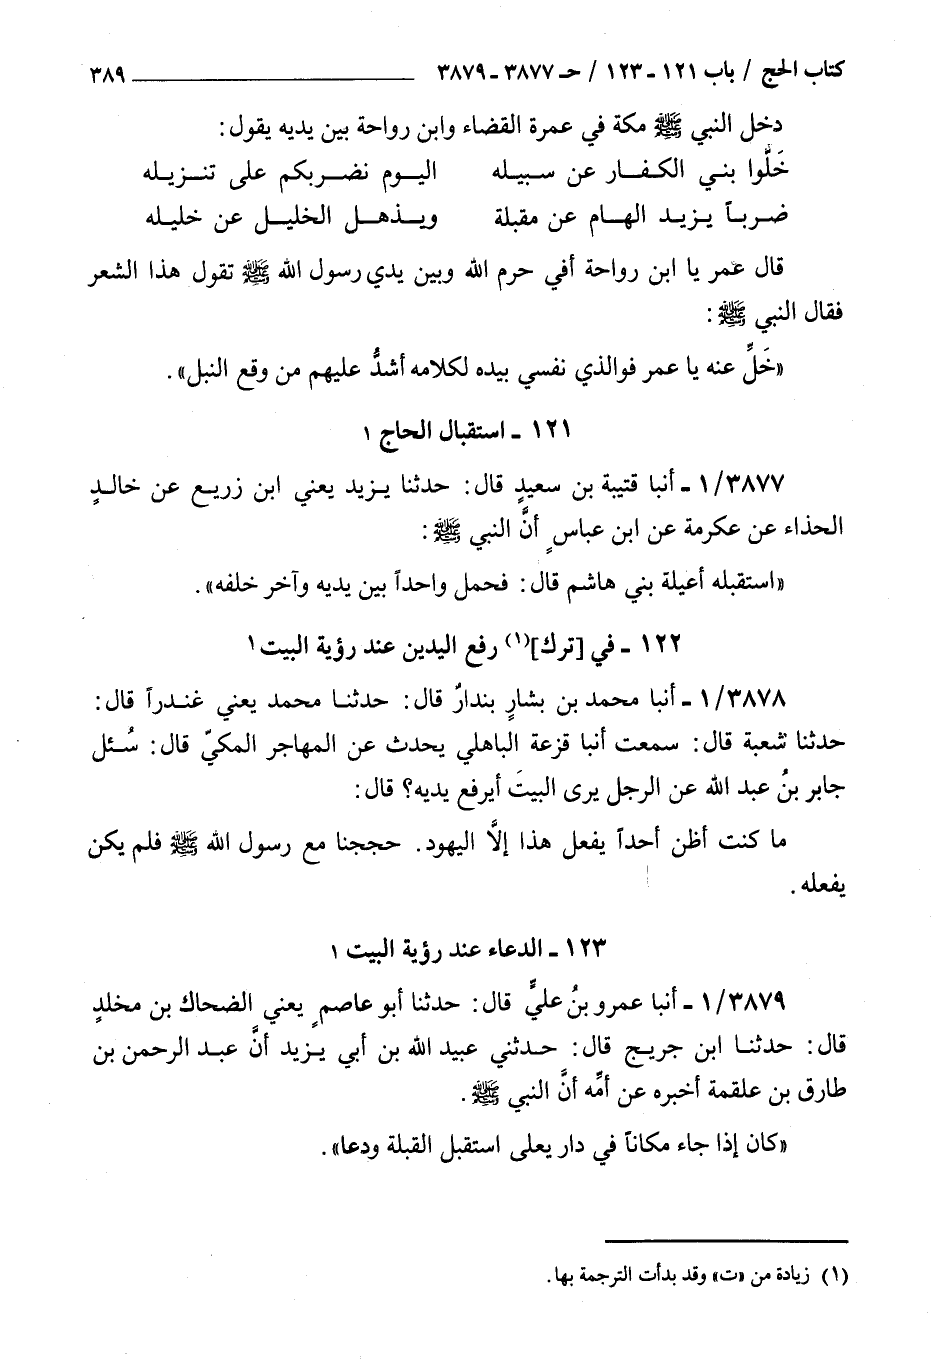 كتاب الحج / باب ١٢١ - ١٢٣ / حـ ٣٨٧٧ - ٣٨٧٩ ٣٨٩
دخل النبي ﷺ مكة في عمرة القضاء وابن رواحة بين يديه يقول:
خَلُّوا بنـي الكـفـار عن سـبيلـه اليـوم نضـربـكم علـى تنـزيلـه
ضـربـاً يـزيـد الهـام عن مقبلة ويـذهـل الخليـل عن خليلـه
قال عمر يا ابن رواحة أفي حرم الله وبين يدي رسول الله ﷺ تقول هذا الشعر
فقال النبي ﷺ:
«خَلِّ عنه يا عمر فوالذي نفسي بيده لكلامه أشدُّ عليهم من وقع النبل».
١٢١ - استقبال الحاج ١
١/٣٨٧٧ - أنبا قتيبة بن سعيدٍ قال: حدثنا يـزيد يعني ابن زريـع عن خالـدٍ
الحذاء عن عكرمة عن ابن عباسٍ أنَّ النبي ﷺ:
«استقبله أعيلة بني هاشم قال: فحمل واحداً بين يديه وآخر خلفه».
١٢٢ - في [ترك](١) رفع اليدين عند رؤية البيت ١
١/٣٨٧٨ - أنبا محمد بن بشارٍ بندارٌ قال: حدثنـا محمد يعني غنـدراً قال:
حدثنا شعبة قال: سمعت أنبا قزعة الباهلي يحدث عن المهاجر المكيّ قال: سُـئل
جابر بنُ عبد الله عن الرجل يرى البيتَ أيرفع يديه؟ قال:
ما كنت أظن أحداً يفعل هذا إلاَّ اليهود. حججنا مع رسول الله ﷺ فلم يكن
يفعله.
١٢٣ - الدعاء عند رؤية البيت ١
١/٣٨٧٩ - أنبا عمرو بنُ عليٍّ قال: حدثنا أبو عاصمٍ يعني الضحاك بن مخلدٍ
قال: حدثنـا ابن جريـج قال: حـدثني عبيد الله بن أبي يـزيد أنَّ عبـد الرحمن بن
طارق بن علقمة أخبره عن أمِّه أنَّ النبي ﷺ.
«كان إذا جاء مكاناً في دار يعلى استقبل القبلة ودعا».
(١) زيادة من «ت» وقد بدأت الترجمة بها.